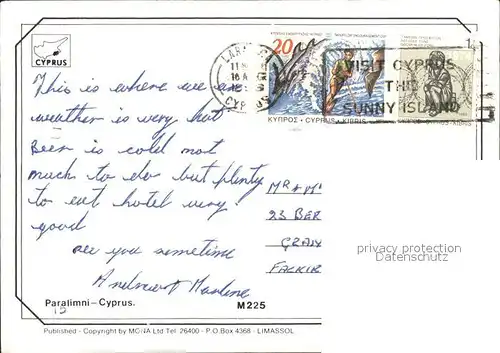 CYPRUS
LARN
11
CYPRUS
20
VISIT CYPRUS
THE
SUNNY ISLAND
ΚΥΠΡΟΣ - CYPRUS - KIBRIS
This is where we are
weather is very hot
Beer is cold not
much to do but plenty
to eat hotel very
good
see you sometime
Andrew & Marlene
MR & M
23 BER
GRAN
FALKIR
privacy protection
Dreamworld
Paralimni – Cyprus.
M225
15
Published - Copyright by MONA Ltd Tel. 26400 - P.O.Box 4368 - LIMASSOL